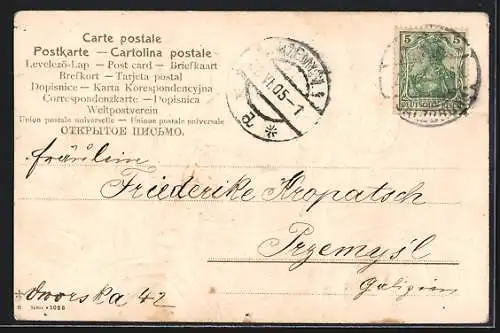 Carte postale
Postkarte – Cartolina postale
Levelező-Lap – Post card – Briefkaart
Brefkort – Tarjeta postal
Dopisnice – Karta Korespondencyjna
Correspondenzkarte – Dopisnica
Weltpostverein
Union postale universelle – Unione postale universale
ОТКРЫТОЕ ПИСЬМО.
5 5
VI.05-1
a
Fräulein
Friederike Kropatsch
Przemyśl
Galizien
Dworska 42